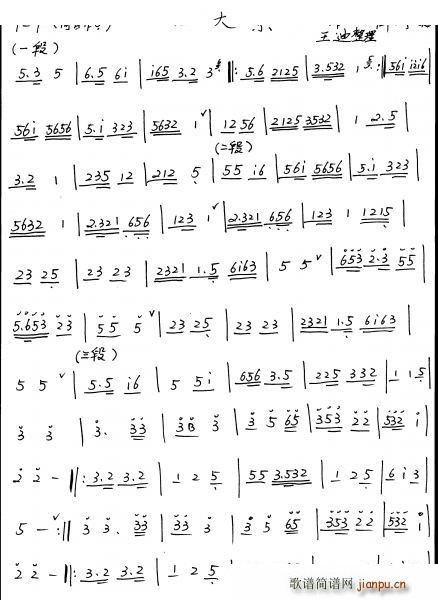 大
王迪整理
(一段)
5.3 5 | 6.5 6i | i65 3.2 3 :|: 5.6 2125 | 3.532 1 :|: 56i i2i6 |
56i 5656 | 5.i 323 | 5632 1 ˅ | 12 56 | 2125 3532 | 1 2.5 |
(二段)
3.2 1 | 235 12 | 212 5 | 55 i6 | 56i 5656 | 5.i 323 |
5632 1 | 2.321 656 | 123 1 ˅ | 2.321 656 | 123 1 1215 |
23 25 | 23 23 | 2321 1.5 6163 | 5 5 ˅ | 653 2.3 55 |
5.653 23 | 5 5 5 ˅ | 23 25 | 23 23 | 2321 1.5 6163 |
(三段)
5 5 ˅ | 5.5 i6 | 5 5i | 656 3.5 | 225 332 | 1 1 5 |
3 3 | 3. 33 | 33 3 | 3 5 65 | 353 22 | 532 i |
2 2 - ||: 3.2 3.2 | 1 2 5 | 55 3.532 | 1 2 5 | 6 i 3 |
5 - ˅ :|| 3 3. 33 | 33 3 | 3 5 65 | 353 22 | 532 i |
2 2 - ||: 3.2 3.2 | 1 2 5
歌谱简谱网
jianpu.cn